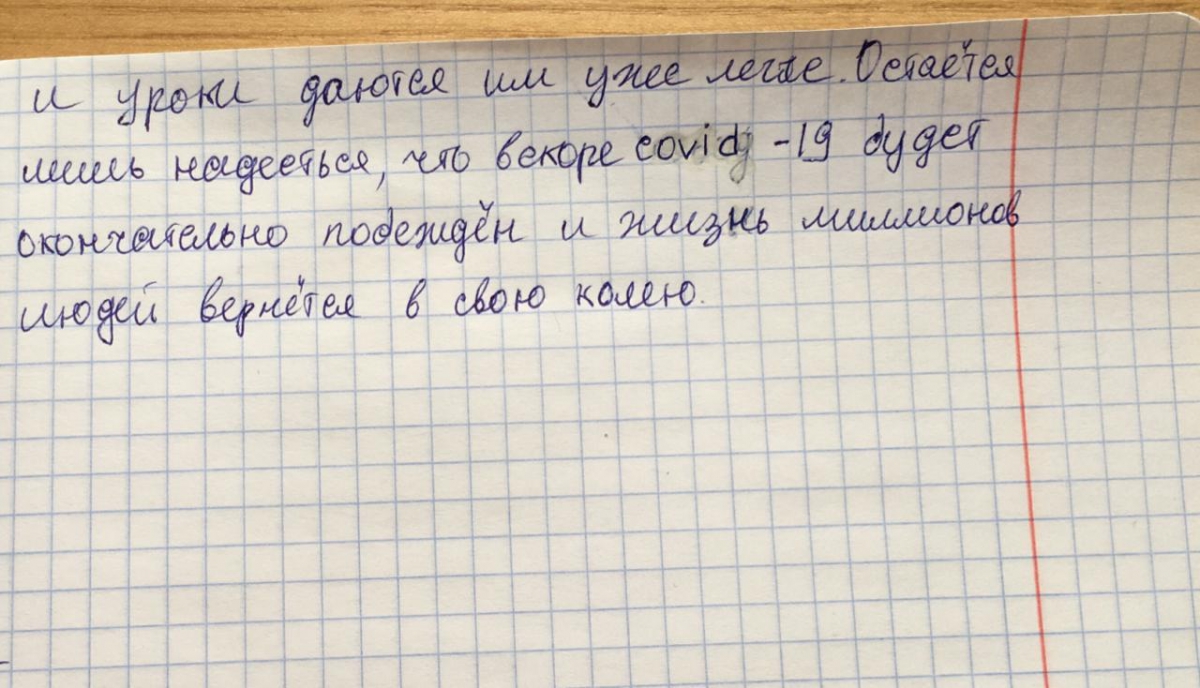 и уроки даются им уже легче. Остаётся
лишь надееться, что вскоре covid -19 будет
окончательно побеждён и жизнь миллионов
людей вернётся в свою колею.